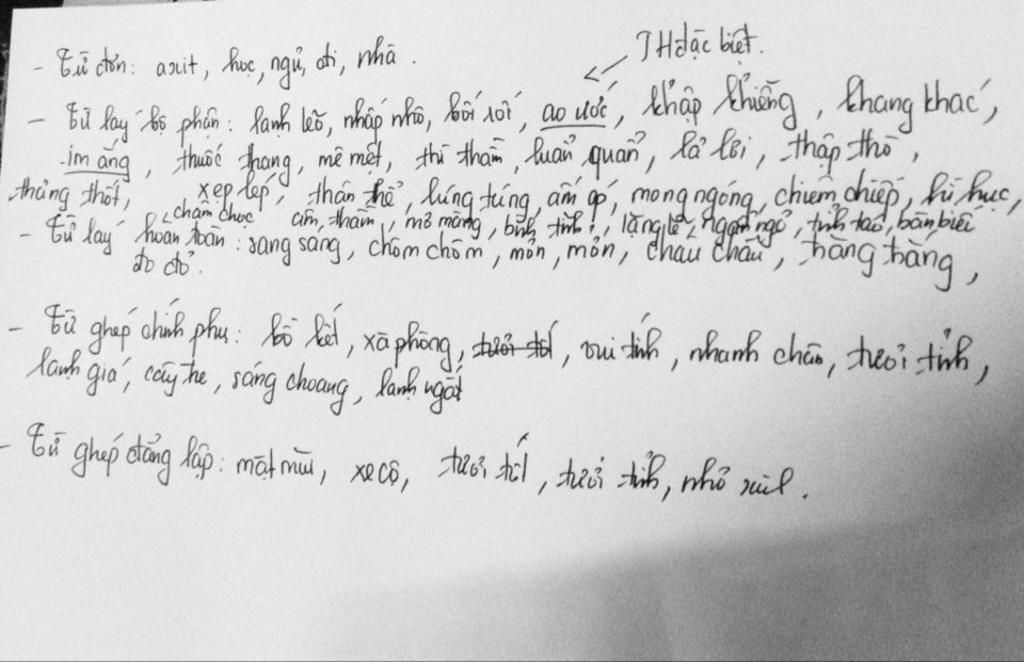 TH đặc biệt.
- Từ đơn: axit, học, ngủ, đi, nhà.
- Từ láy bộ phận: lạnh lẽo, nhấp nhô, bối rối, ao ước, khập khiễng, khang khác,
im ắng, thuốc thang, mê mệt, thì thầm, luẩn quẩn, lả lơi, thập thò,
thảng thốt, xẹp lép, thân thể, lúng túng, ấm áp, mong ngóng, chiêm chiếp, hì hục,
châm chọc, mơ màng, bình tĩnh, lặng lẽ, ngạt ngỏ, tỉnh táo,
- Từ láy hoàn toàn: sang sang, chồm chồm, mỏn, mỏn, châu chấu, hằng hằng,
đo đỏ.
- Từ ghép chính phụ: bồ kết, xà phòng, vui tính, nhanh chân, tươi tỉnh,
lạnh giá, cây tre, sáng choang, lạnh ngắt
- Từ ghép đẳng lập: mặt mũi, xe cộ, tươi tốt, tươi tỉnh, nhỏ xíu.